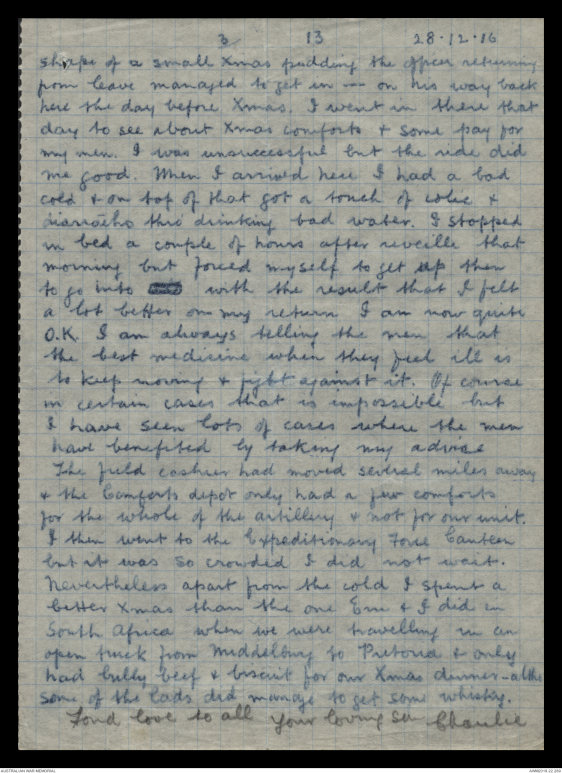 3 13 28.12.16
shape of a small Xmas pudding the officer returning
from leave managed to get in — on his way back
here the day before Xmas. I went in there that
day to see about Xmas comforts & some pay for
my men. I was unsuccessful but the ride did
me good. When I arrived here I had a bad
cold & on top of that got a touch of colic &
thro drinking bad water. I stopped
in bed a couple of hours after reveille that
morning but forced myself to get up then
to go into with the result that I felt
a lot better on my return I am now quite
O.K. I am always telling the men that
the best medicine when they feel ill is
to keep moving & fight against it. Of course
in certain cases that is impossible but
I have seen lots of cases where the men
have benefited by taking my advice
The field cashier had moved several miles away
& the Comforts depot only had a few comforts
for the whole of the artillery & not for our unit.
I then went to the Expeditionary Force Canteen
but it was so crowded I did not wait.
Nevertheless apart from the cold I spent a
better Xmas than the one Ern & I did in
South Africa when we were travelling in an
open truck from Middelburg to Pretoria & only
had bully beef & biscuit for our Xmas dinner - altho
some of the lads did manage to get some whisky.
Fond love to all your loving son Charlie
AUSTRALIAN WAR MEMORIAL